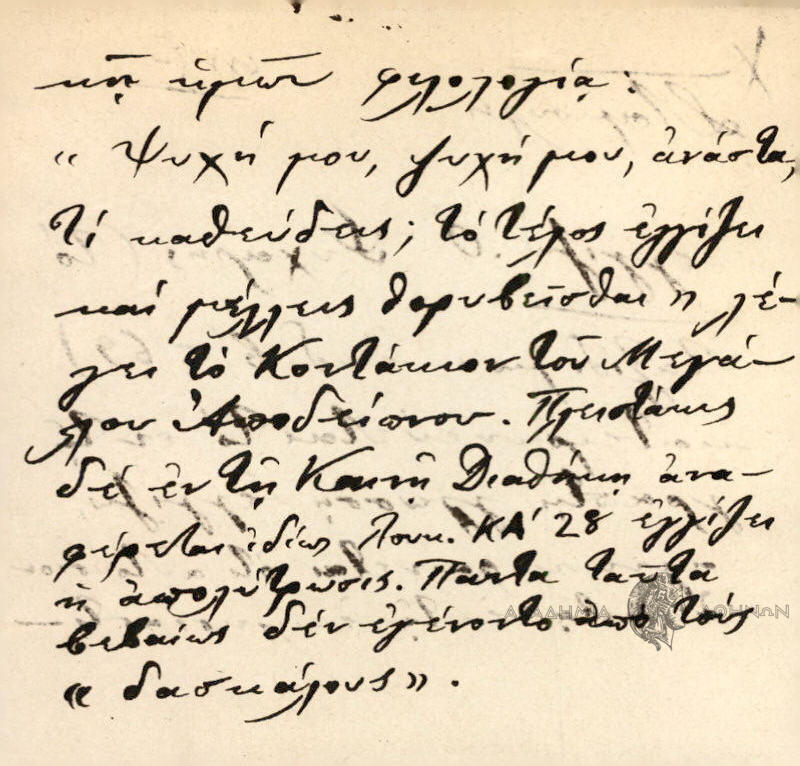 κῇ ἡμῶν φιλολογίᾳ:
« Ψυχή μου, ψυχή μου, ἀνάστα,
τί καθεύδεις; τό τέλος ἐγγίζει
καί μέλλεις θορυβεῖσθαι » λέ-
γει τό Κοντάκιον τοῦ Μεγά-
λου Ἀποδείπνου. Πλειστάκις
δέ ἐν τῇ Καινῇ Διαθήκῃ ἀνα-
φέρεται ἰδίως Λουκ. ΚΑ' 28 ἐγγίζει
ἡ ἀπολύτρωσις. Πάντα ταῦτα
βεβαίως δέν ἐγένοντο ἀπό τούς
« δασκάλους ».
ΑΚΑΔΗΜΙΑ ΑΘΗΝΩΝ